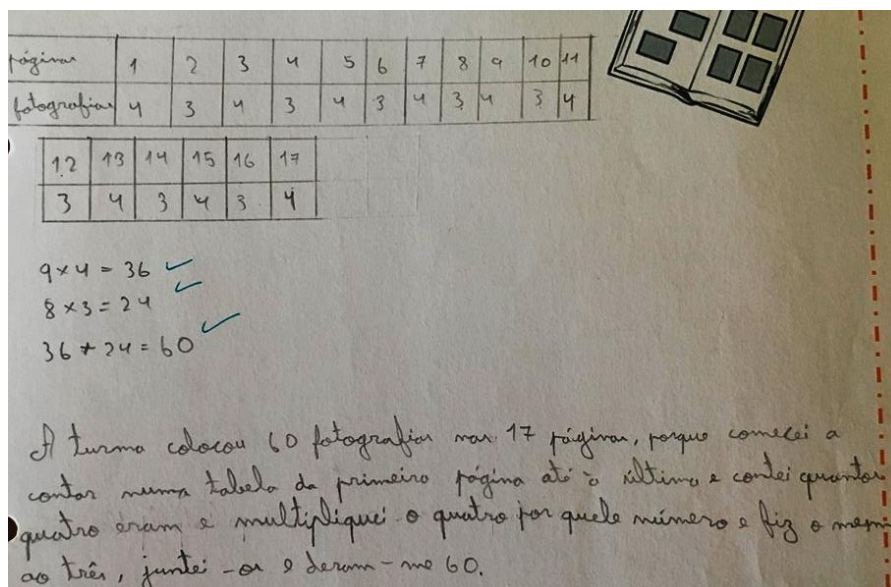 páginas 1 2 3 4 5 6 7 8 9 10 11
fotografias 4 3 4 3 4 3 4 3 4 3 4
12 13 14 15 16 17
3 4 3 4 3 4
9 × 4 = 36
8 × 3 = 24
36 + 24 = 60
A turma colocou 60 fotografias nas 17 páginas, porque comecei a
contar numa tabela da primeira página até à última e contei quantos
quatro eram e multipliquei o quatro por quele número e fiz o mesm
ao três, juntei-os e deram-me 60.